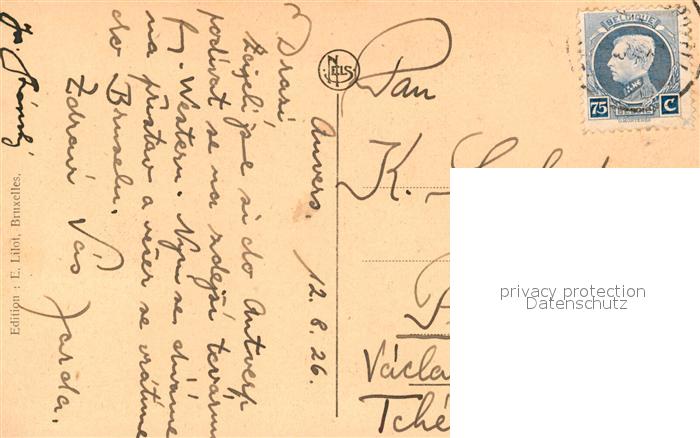 Anvers. 12.8.26.
Drazí
Zajeli jsme si do Antverp
podívat se na zdejší továrnu
fy. Western. Nyní se díváme
na přístav a večer se vrátíme
do Bruselu.
Zdraví Vás
Jarda.
Edition : E. Lilot, Bruxelles.
NELS
Pan
K.
Václa
Tché
BELGIQUE
75 C
privacy protection
Datenschutz